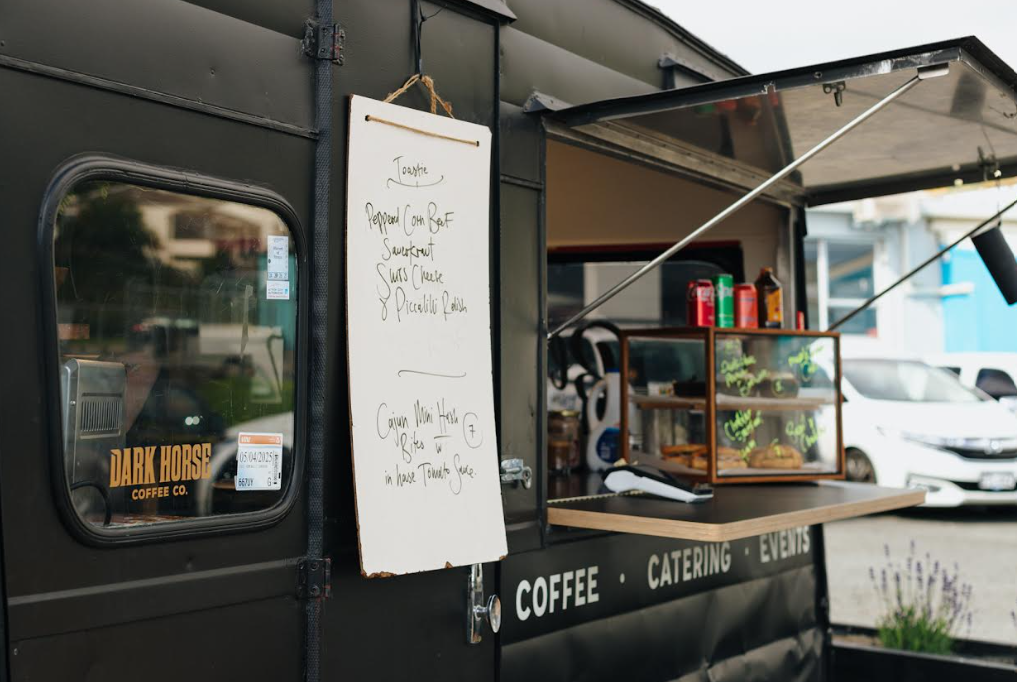 Toastie
Pepperd Corn Beef
Sauerkraut
Swiss Cheese
& Piccalilli Relish
Cajun Mini Hash
Bites w
7
in house Tomato Sauce.
DARK HORSE
COFFEE CO.
05/04/2025
COFFEE · CATERING · EVENTS